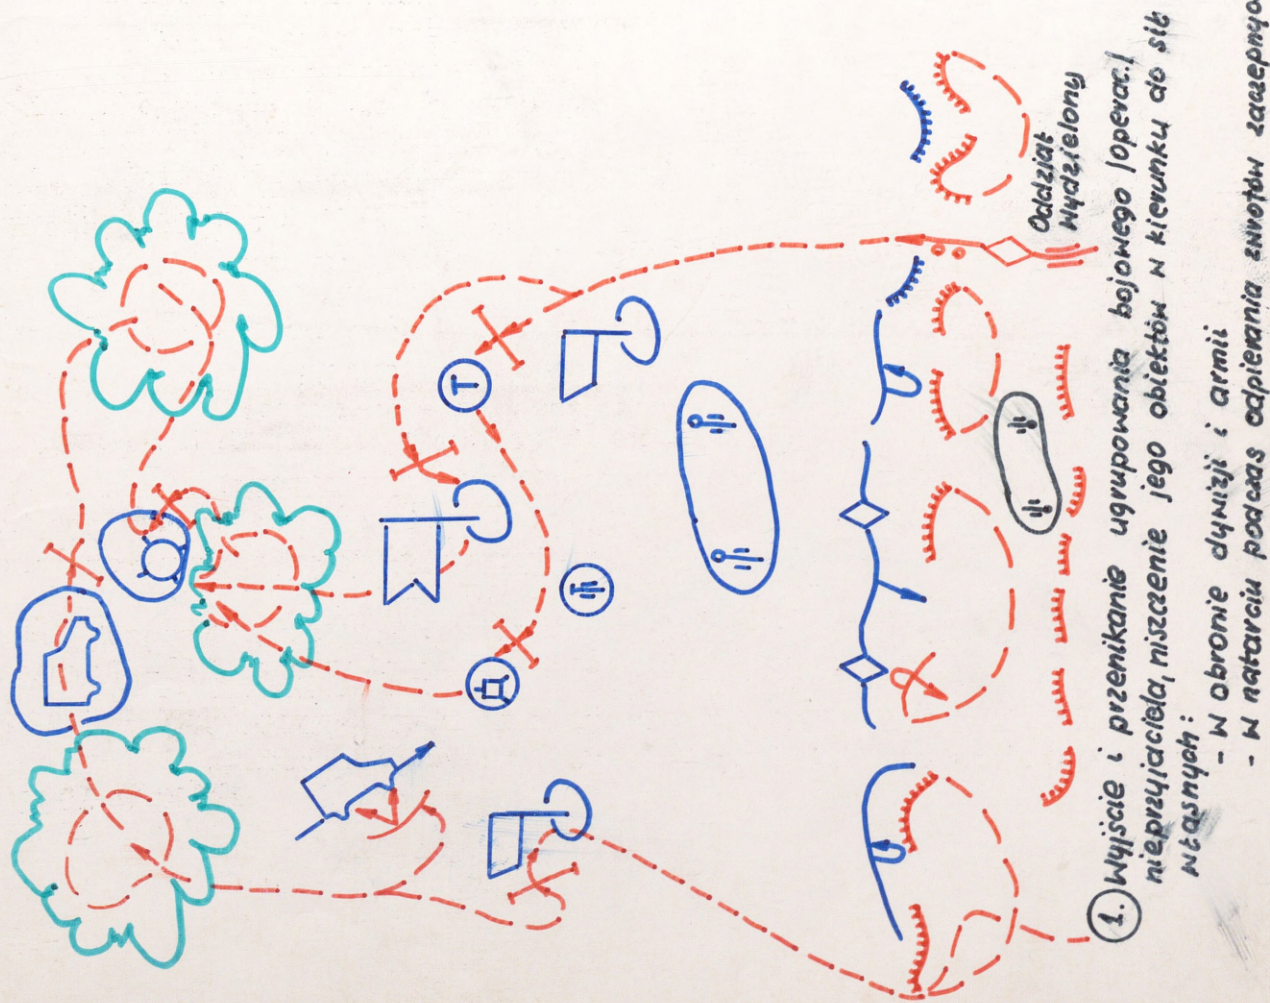 Oddział
Wydzielony
1. Wyjście i przenikanie ugrupowania bojowego /operac./
nieprzyjaciela, niszczenie jego obiektów w kierunku do sił
własnych:
- w obronie dywizji i armii
- w natarciu podczas odpierania zwrotów zaczepnyc
T